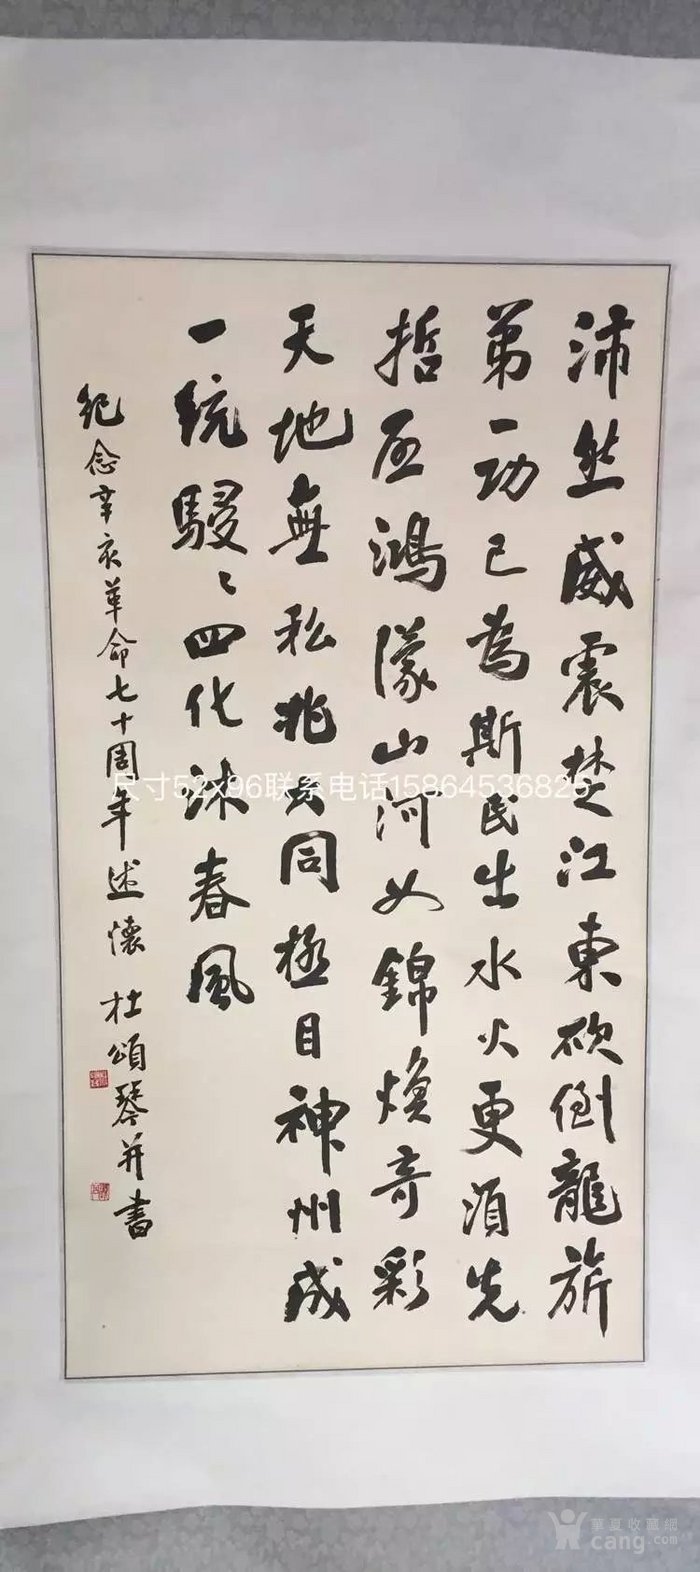 沛然威震楚江東砍倒龍旂
第一功已為斯民出水火更須先
哲匝鴻濛山河如錦煥奇彩
天地無私兆大同極目神州成
一統駸〻四化沐春風
紀念辛亥革命七十周年述懷 杜頌琴并書
尺寸52x96联系电话15864536825
華夏收藏網
cang.com